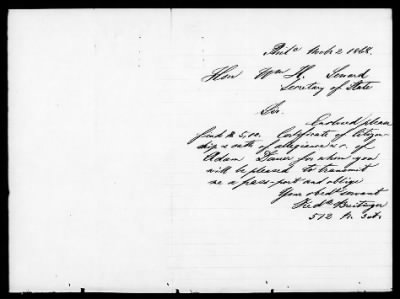 Phila Mch 2 1868.
Hon Wm H. Seward
Secretary of State
Sir.
Enclosed please
find $ 5,00. Certificate of Citizen-
ship & oath of allegiance &c. of
Adam Dauer for whom you
will be pleased to transmit
me a pass-port and oblige
Your obedt servant
Fredk
512 N. 3d St.